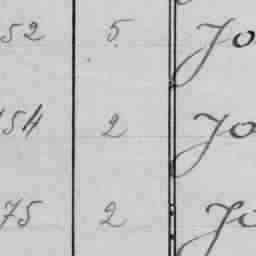 52 5. Jo
154 2 Jo
75 2 Jo